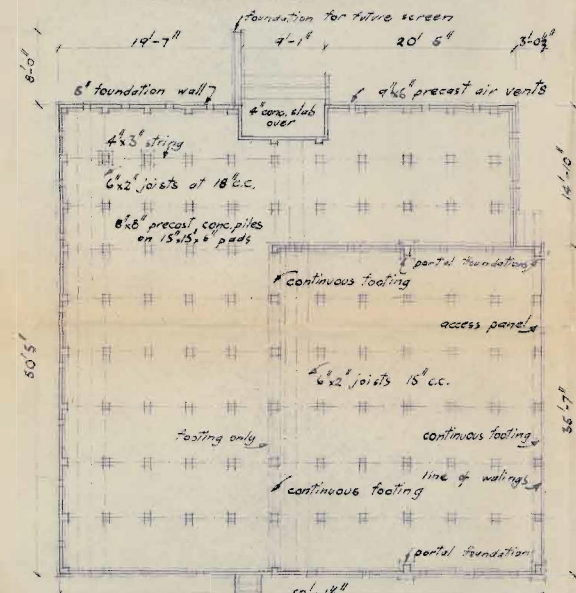 foundation for future screen
19'-7"
9'-1"
20' 5"
3'-0½"
8'-0"
6" foundation wall
9"x6" precast air vents
4" conc. slab
over
4"x3" string
6"x2" joists at 18" c.c.
14'-10"
8"x8" precast conc. piles
on 15"x15"x6" pads
portal foundations
continuous footing
access panel
50'5"
6"x2" joists 15" c.c.
footing only
continuous footing
35'-7"
line of walings
continuous footing
portal foundation